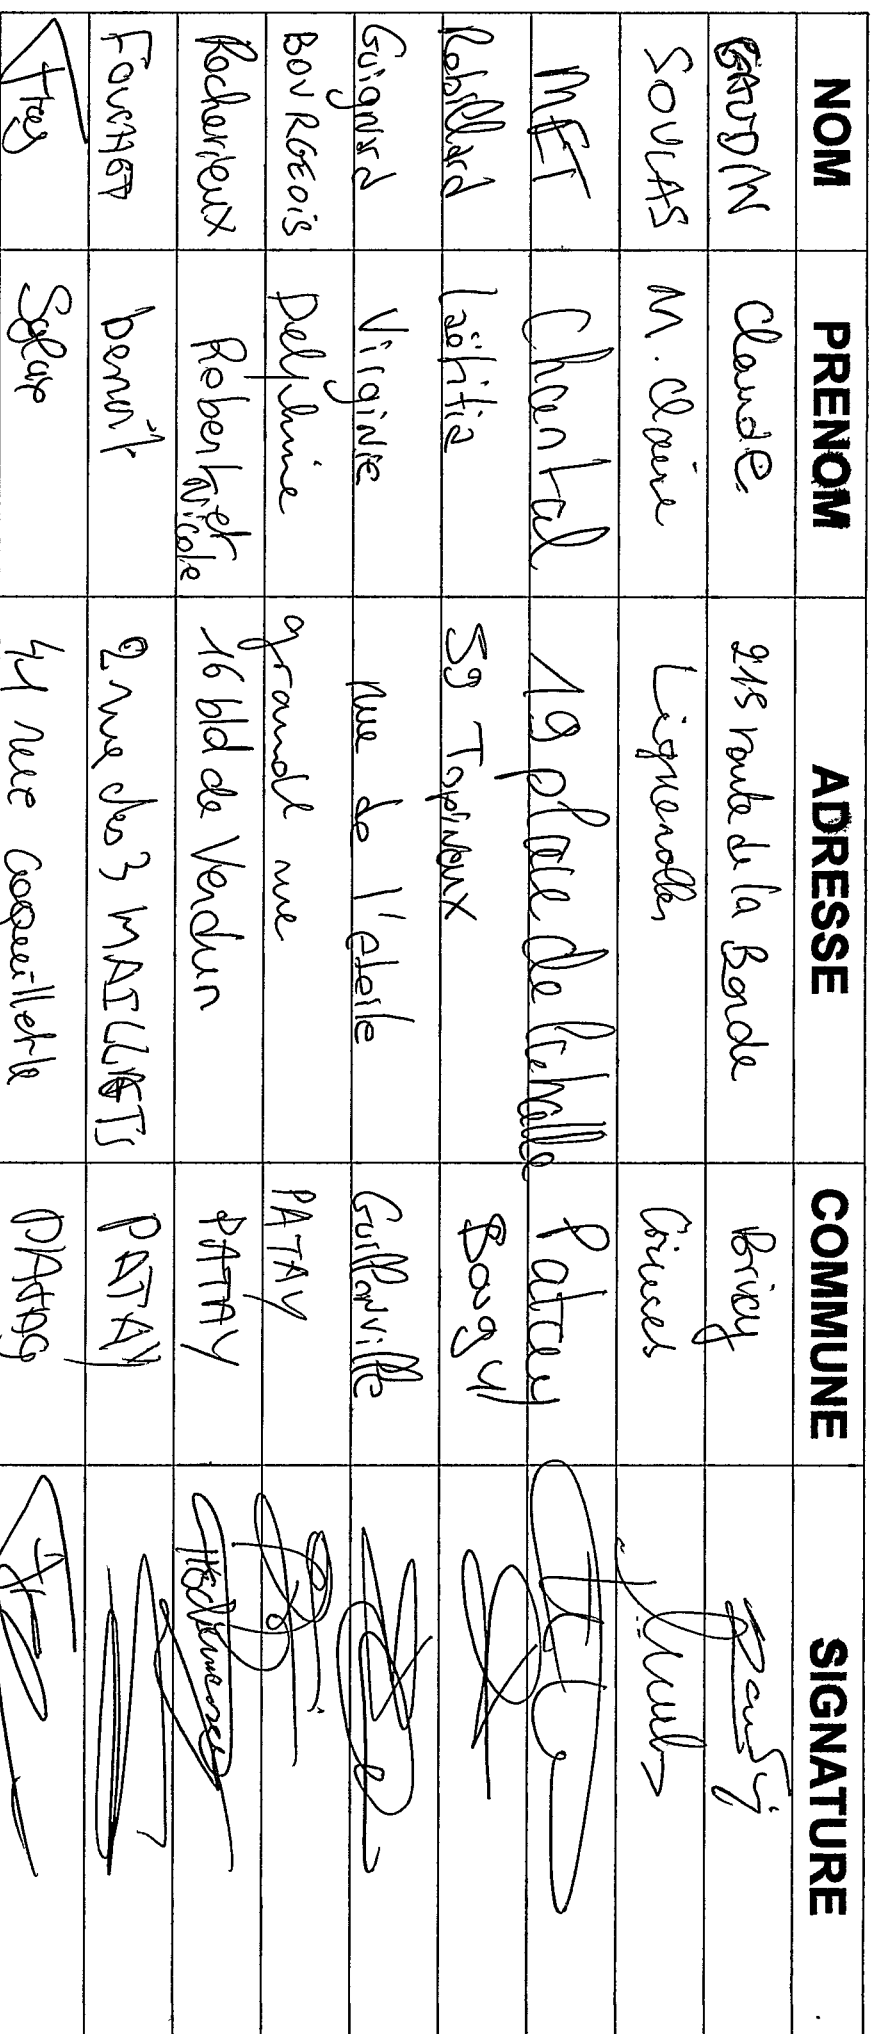 NOM PRENOM ADRESSE COMMUNE SIGNATURE
GAUDIN Claude 215 route de la Bonde Bricy
SOULAS M. Claire Lignerolles Coinces
MET Chantal 19 place de la halle Patay
Robillard Laëtitia 59 Topineux Bougy
Guignard Virginie rue de l'étoile Guillonville
BOURGEOIS Delphine grande rue PATAY
Rocherieux Robert et Nicole 16 bld de Verdun PATAY
benoît 2 rue des 3 MAILLETS PATAY
41 rue